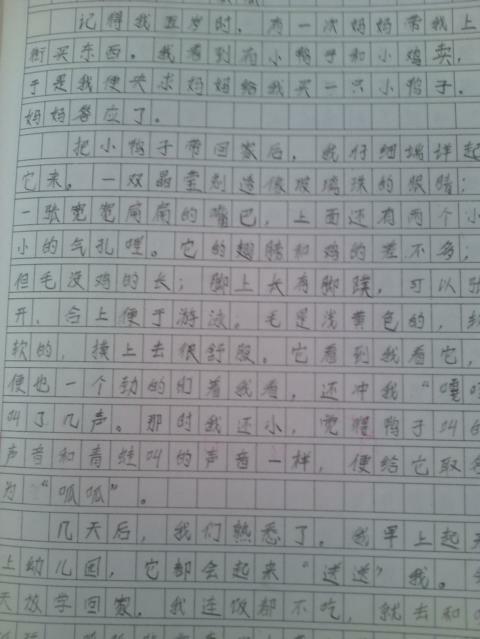 记得我五岁时，有一次妈妈带我上
街买东西。我看到有小鸭子和小鸡卖，
于是我便央求妈妈给我买一只小鸭子。
妈妈答应了。
把小鸭子带回家后，我仔细端详起
它来。一双晶莹剔透像玻璃珠的眼睛；
一张宽宽扁扁的嘴巴，上面还有两个小
小的气孔哩。它的翅膀和鸡的差不多；
但毛没鸡的长；脚上长有脚蹼，可以张
开、合上便于游泳；毛是浅黄色的，软
软的，摸上去很舒服。它看到我看它，
便也一个劲的盯着我看，还冲我“嘎
叫了几声。那时我还小，觉得鸭子叫的
声音和青蛙叫的声音一样，便给它取名
为“呱呱”。
几天后，我们熟悉了。我早上起来
上幼儿园，它都会起来“送送”我。
天放学回家，我连饭都不吃，就去和